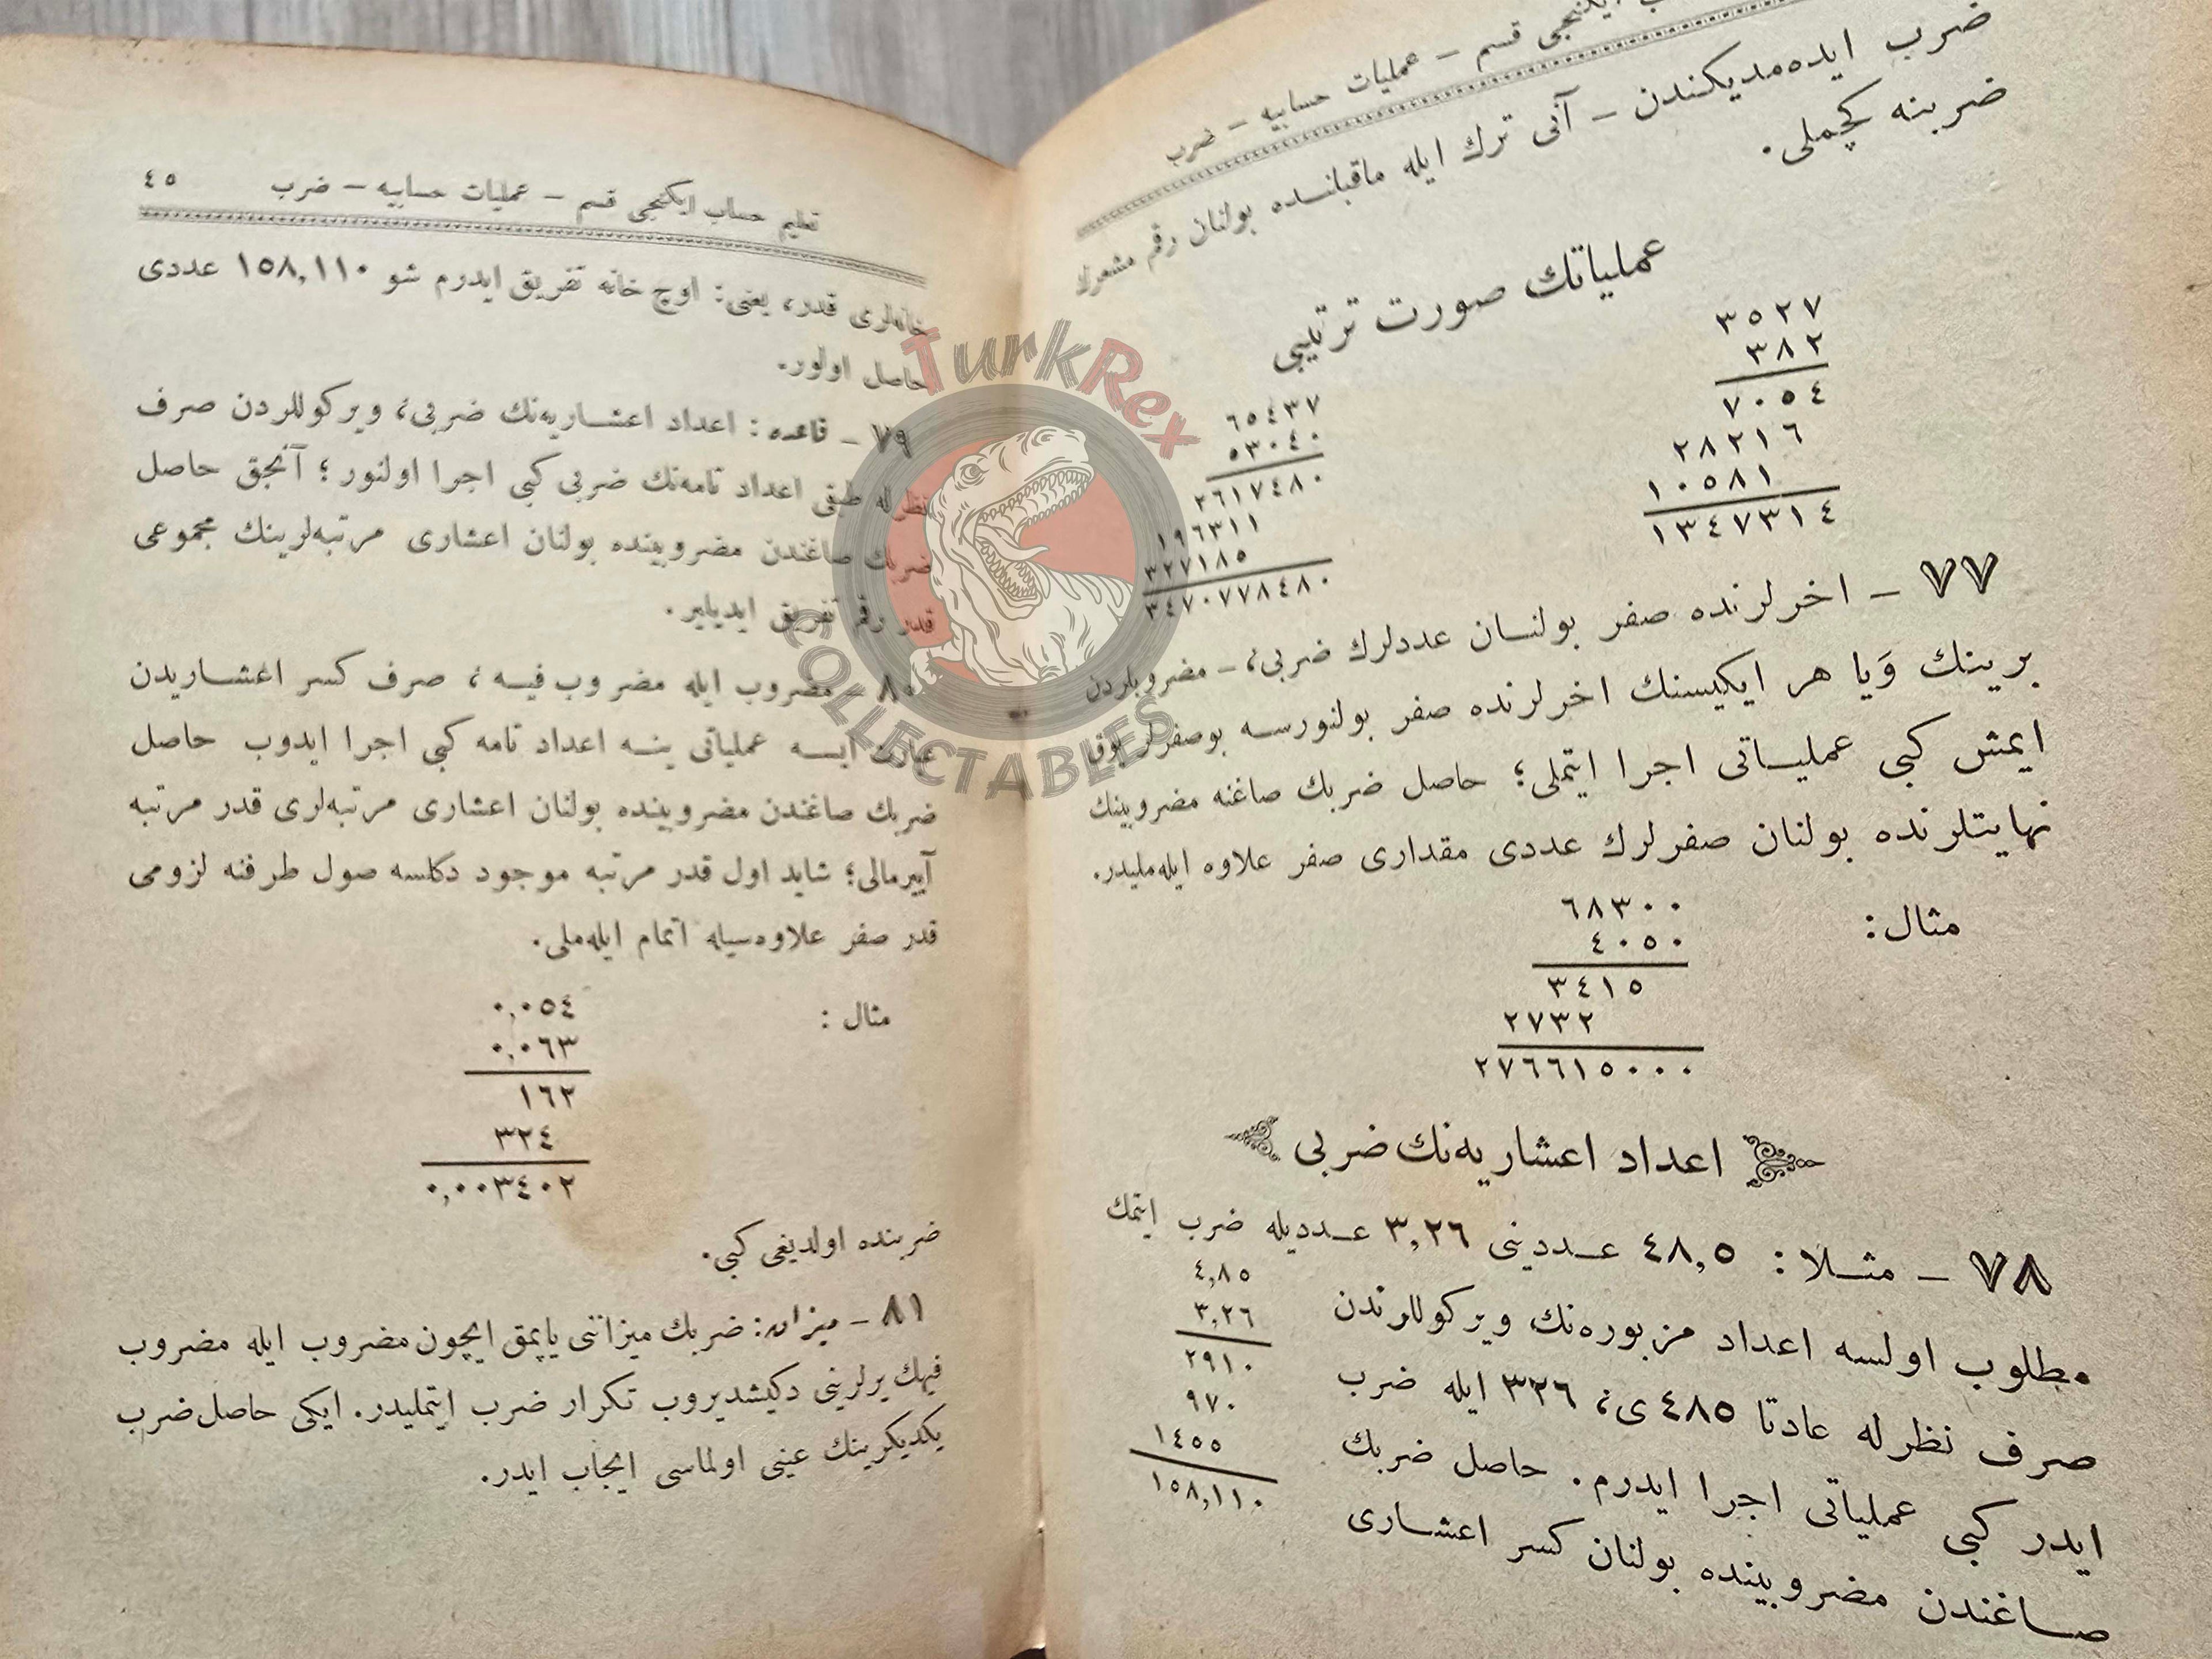 ايكنجى قسم – عمليات حسابيه – ضرب
ضرب ايده‌مديكندن – آنى ترك ايله ماقبلنده بولنان رقم مشعرله
ضربنه كچملى.
عملياتك صورت ترتيبى
٣٥٢٧
٣٨٢
٧٠٥٤
٢٨٢١٦
١٠٥٨١
١٣٤٧٣١٤
٦٥٤٣٧
٥٣٠٤٠
٢٦١٧٤٨٠
١٩٦٣١١
٣٢٧١٨٥
٣٤٧٠٧٧٨٤٨٠
٧٧ – اخرلرنده صفر بولنان عددلرك ضربى، – مضروبلردن
برينك وَيا هر ايكيسنك اخرلرنده صفر بولنورسه بوصفرلر يوق
ايمش كبى عملياتى اجرا ايتملى؛ حاصل ضربك صاغنه مضروبينك
نهايتلرنده بولنان صفرلرك عددى مقدارى صفر علاوه ايله‌مليدر.
مثال:
٦٨٣٠٠
٤٠٥٠
٣٤١٥
٢٧٣٢
٢٧٦٦١٥٠٠٠
اعداد اعشاريه‌نك ضربى
٧٨ – مثلا: ٤٨,٥ عددينى ٣,٢٦ عدديله ضرب ايتمك
مطلوب اولسه اعداد مزبوره‌نك ويركوللرندن
صرف نظرله عادتا ٤٨٥ ى، ٣٢٦ ايله ضرب
ايدر كبى عملياتى اجرا ايدرم. حاصل ضربك
صاغندن مضروبينده بولنان كسر اعشارى
٤,٨٥
٣,٢٦
٢٩١٠
٩٧٠
١٤٥٥
١٥٨,١١٠
تعليم حساب ايكنجى قسم – عمليات حسابيه – ضرب ٤٥
خانه‌لرى قدر، يعنى: اوچ خانه تفريق ايدرم شو ١٥٨,١١٠ عددى
حاصل اولور.
٧٩ – قاعده: اعداد اعشاريه‌نك ضربى، ويركوللردن صرف
نظرله طبقى اعداد تامه‌نك ضربى كبى اجرا اولنور؛ آنجق حاصل
ضربك صاغندن مضروبينده بولنان اعشارى مرتبه‌لرينك مجموعى
قدر رقم تفريق ايديلير.
٨٠ – مضروب ايله مضروب فيه، صرف كسر اعشاريدن
عبارت ايسه عملياتى ينه اعداد تامه كبى اجرا ايدوب حاصل
ضربك صاغندن مضروبينده بولنان اعشارى مرتبه‌لرى قدر مرتبه
آييرمالى؛ شايد اول قدر مرتبه موجود دكلسه صول طرفنه لزومى
قدر صفر علاوه‌سيله اتمام ايله‌ملى.
مثال:
٠,٠٥٤
٠,٠٦٣
١٦٢
٣٢٤
٠,٠٠٣٤٠٢
ضربنده اولديغى كبى.
٨١ – ميزان: ضربك ميزاننى ياپمق ايچون مضروب ايله مضروب
فيهك يرلرينى دكيشديروب تكرار ضرب ايتمليدر. ايكى حاصل ضرب
يكديكرينك عينى اولماسى ايجاب ايدر.
TurkRex
COLLECTABLES